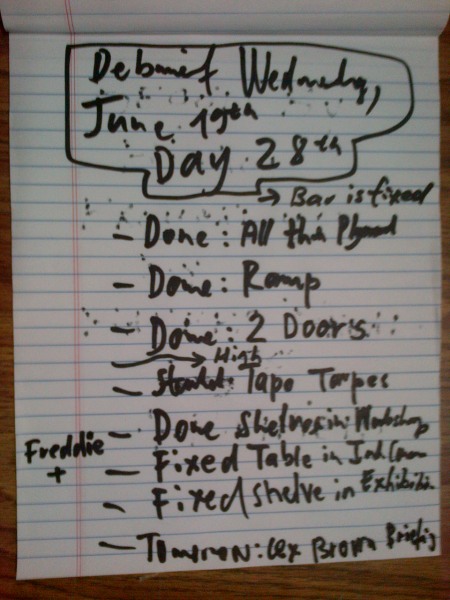 Debrief Wednesday,
June 19th
Day 28th
→ Bar is fixed
- Done: All the Plywood
- Done: Ramp
- Done: 2 Doors
→ High
- Started: Tape Tarpes
- Done Shelves in: Workshop
Freddie +
- Fixed Table in
- Fixed Shelve in Exhibitio
- Tomorrow: Lex Brown Briefing